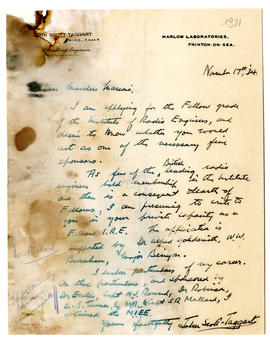 1931
JOHN SCOTT-TAGGART
MARLOW LABORATORIES,
FRINTON-ON-SEA.
Dear Marchese Marconi,
I am applying for the Fellow grade
of the Institute of Radio Engineers, and
desire to know whether you would
act as one of the necessary five
sponsors.
British
As few of the leading radio
engineers hold membership in the Institute
and there is a consequent dearth of
Fellows, I am presuming to write to
you in your private capacity as a
Fellow I.R.E. The application is
supported by Dr Alfred Goldsmith, W.W.
I enclose particulars of my career.
On these particulars, and sponsored by
Dr Eccles, Capt H.J. Round, Dr Robinson,
attained the M.I.E.E.
Yours faithfully John Scott-Taggart